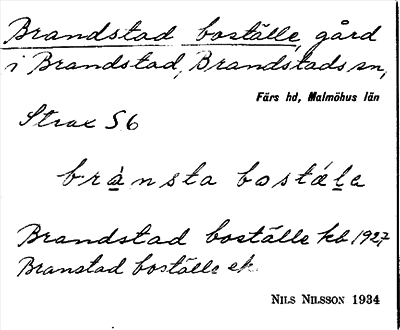 Brandstad boställe, gård
i Brandstad, Brandstads sn,
Färs hd, Malmöhus län
Strax S 6
brànsta bostáḻa
Brandstad boställe kb 1927
Branstad boställe ek.
NILS NILSSON 1934